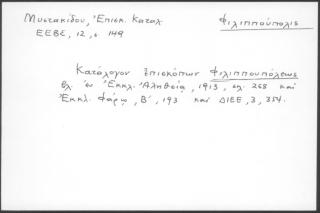 Μυστακίδου, Ἐπισκ. Καταλ Φιλιππούπολις
ΕΕΒΣ, 12, σ. 149
Κατάλογον ἐπισκόπων Φιλιππουπόλεως
βλ. ἐν Ἐκκλ. Ἀληθείᾳ, 1913, σλ. 268 καὶ
Ἐκκλ. Φάρῳ, Β', 193 καὶ ΔΙΕΕ, 3, 354.